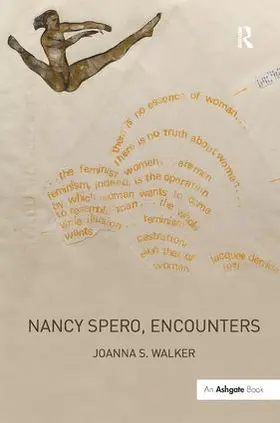 R
there is no essence of woman...
there is no truth about woman...
....the feminist women...
feminism, indeed, is the operation
by which woman wants to come
to resemble man ... the whole
virile illusion ... feminism
wants castration,
even that of
woman
jacques derrida
NANCY SPERO, ENCOUNTERS
JOANNA S. WALKER
An Ashgate Book